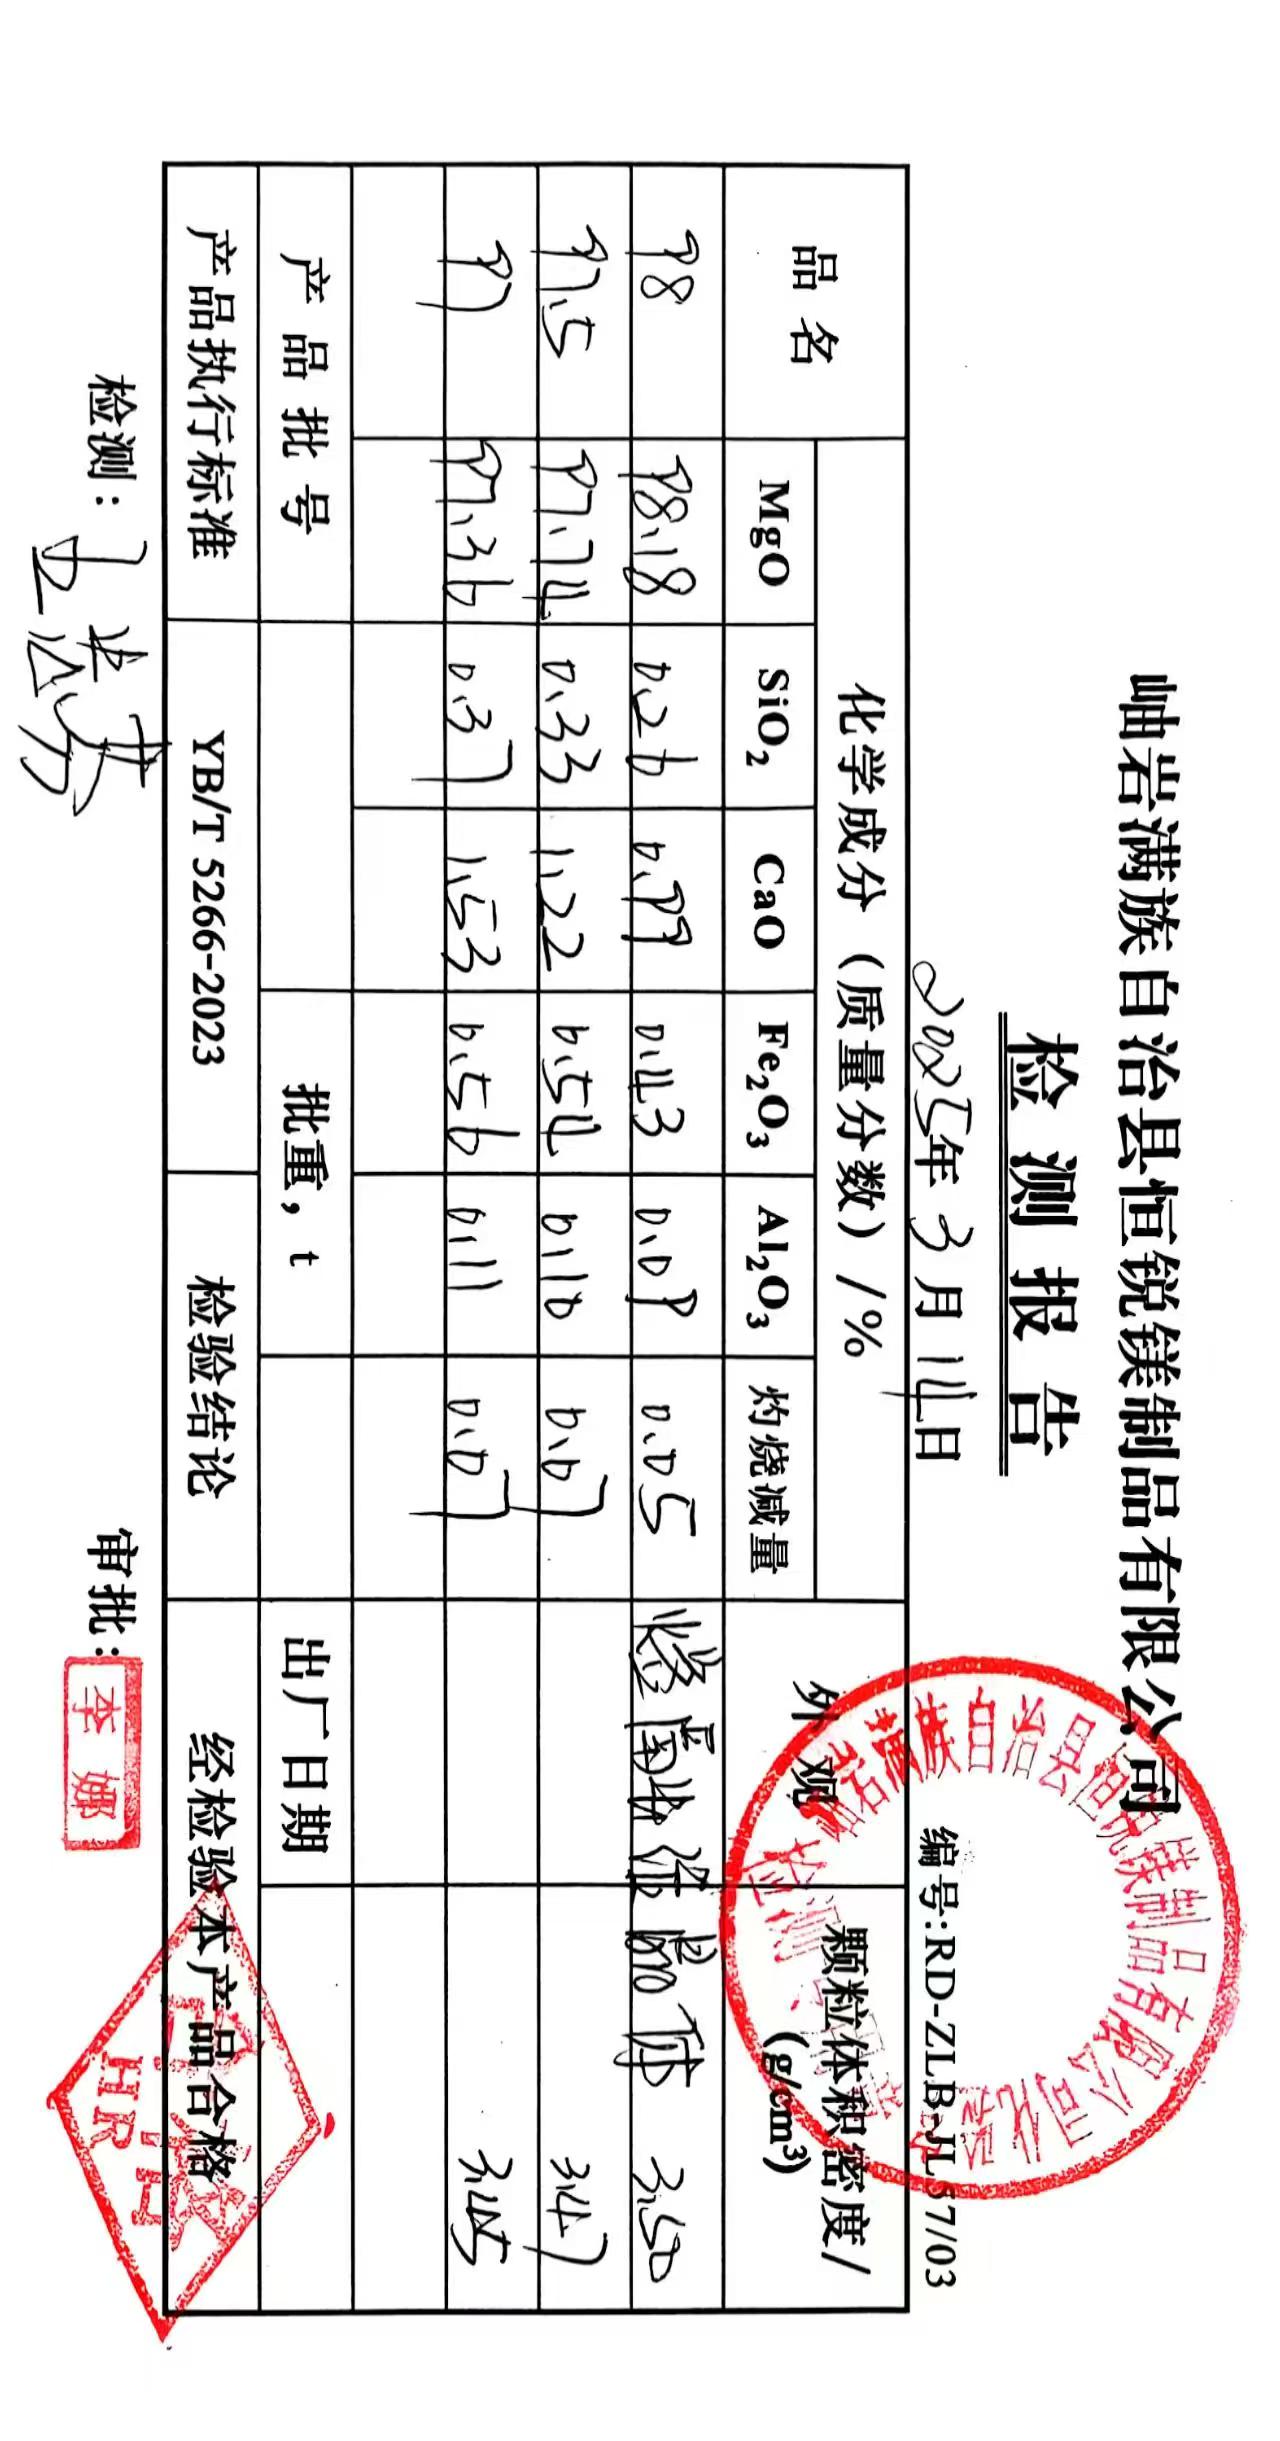 岫岩满族自治县恒锐镁制品有限公司
检测报告
2025年3月14日 编号:RD-ZLB-JL57/03
品名 化学成分（质量分数）/% 外观 颗粒体积密度/(g/cm³)
MgO SiO₂ CaO Fe₂O₃ Al₂O₃ 灼烧减量
98 98.18 0.26 0.99 0.43 0.09 0.05 3.50
97.5 97.74 0.33 1.22 0.54 0.10 0.07 3.47
97 97.36 0.37 1.53 0.56 0.11 0.07 3.45
产品批号 批重，t 出厂日期
产品执行标准 YB/T 5266-2023 检验结论 经检验本产品合格
检测： 审批：李娜
岫岩满族自治县恒锐镁制品有限公司化验
检测
HR